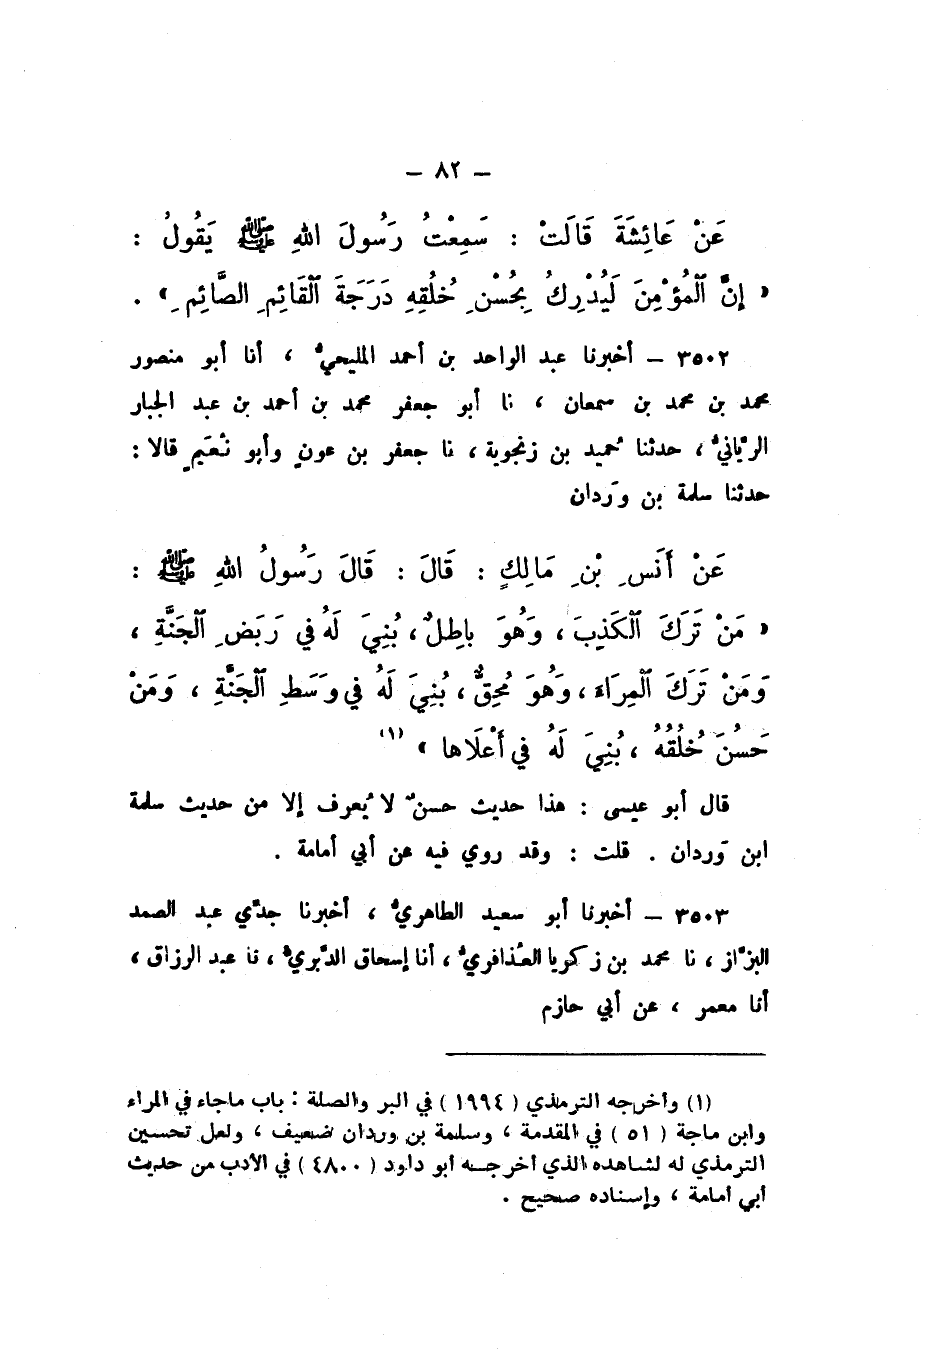 – ٨٢ –
عَنْ عَائِشَةَ قَالَتْ : سَمِعْتُ رَسُولَ اللهِ ﷺ يَقُولُ :
« إِنَّ الْمُؤْمِنَ لَيُدْرِكُ بِحُسْنِ خُلُقِهِ دَرَجَةَ الْقَائِمِ الصَّائِمِ » .
٣٥٠٢ – أخبرنا عبد الواحد بن أحمد المليحيُّ ، أنا أبو منصور
محمد بن محمد بن سمعان ، نا أبو جعفر محمد بن أحمد بن عبد الجبار
الرّيّانيُّ ، حدثنا حُميد بن زنجوية ، نا جعفر بن عونٍ وأبو نُعَيمٍ قالا :
حدثنا سلمة بن وَردان
عَنْ أَنَسِ بْنِ مَالِكٍ : قَالَ : قَالَ رَسُولُ اللهِ ﷺ :
« مَنْ تَرَكَ الْكَذِبَ ، وَهُوَ بَاطِلٌ ، بُنِيَ لَهُ فِي رَبَضِ الْجَنَّةِ ،
وَمَنْ تَرَكَ الْمِرَاءَ ، وَهُوَ مُحِقٌّ ، بُنِيَ لَهُ فِي وَسَطِ الْجَنَّةِ ، وَمَنْ
حَسُنَ خُلُقُهُ ، بُنِيَ لَهُ فِي أَعْلَاهَا » (١)
قال أبو عيسى : هذا حديث حسنٌ لا يُعرف إلا من حديث سلمة
ابن وَردان . قلت : وقد روي فيه عن أبي أمامة .
٣٥٠٣ – أخبرنا أبو سعيد الطاهريُّ ، أخبرنا جدّي عبد الصمد
البزّاز ، نا محمد بن زكريا العُذافريُّ ، أنا إسحاق الدَّبريُّ ، نا عبد الرزاق ،
أنا معمر ، عن أبي حازم
(١) وأخرجه الترمذي ( ١٩٩٤ ) في البر والصلة : باب ماجاء في المراء
وابن ماجة ( ٥١ ) في المقدمة ، وسلمة بن وردان ضعيف ، ولعل تحسين
الترمذي له لشاهده الذي أخرجه أبو داود ( ٤٨٠٠ ) في الأدب من حديث
أبي أمامة ، وإسناده صحيح .